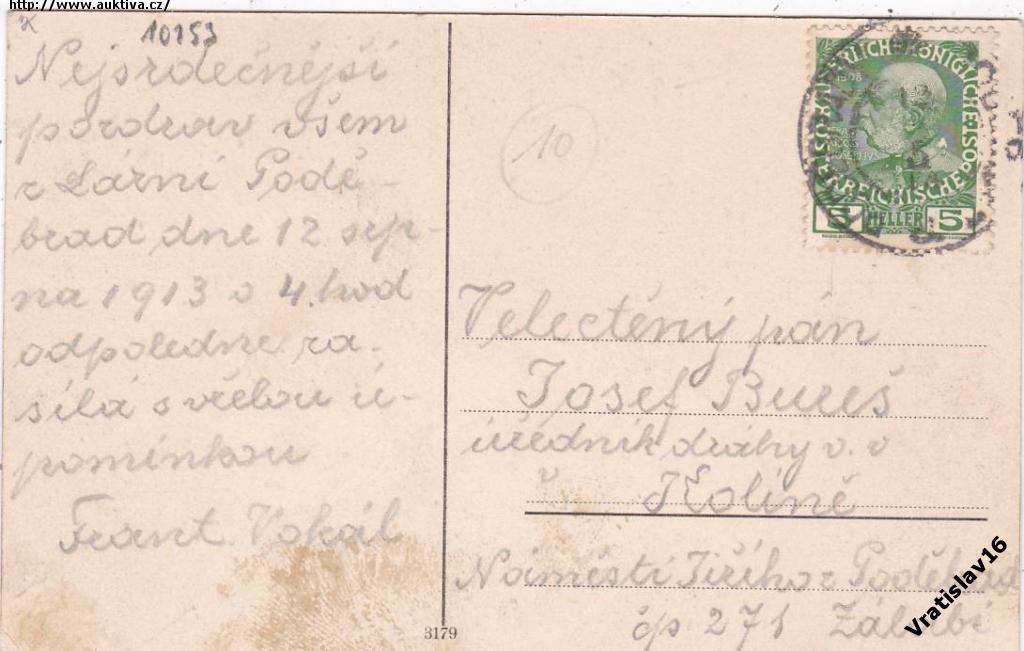 http://www.auktiva.cz/
10153
Nejsrdečnější
pozdrav všem
z Lázní Podě-
brad dne 12 srp-
na 1913 o 4. hod
odpoledne za-
sílá s vřelou ú-
pomínkou
Frant. Vokál
10
1908
5 HELLER 5
Velectěný pán
Josef Bureš
úředník dráhy v. v
v Kolíně
Náměstí Jiřího z Poděbrad
čp 271 Zálabí
3179
Vratislav16